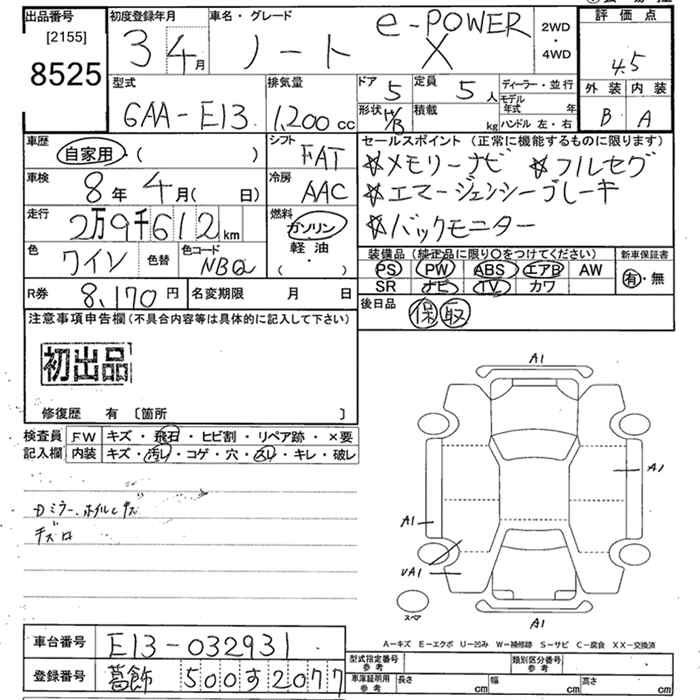 出品番号
[2155]
8525
初度登録年月
3 4月
車名・グレード
ノート e-POWER X
2WD
・
4WD
評価点
4.5
外装 内装
B A
型式
6AA-E13
排気量
1,200 cc
ドア 5
形状 H/B
定員 5 人
積載 kg
ディーラー・並行
モデル年式 年
ハンドル 左・右
車歴
自家用・( )
シフト
FAT
車検
8年 4月( 日)
冷房
AAC
走行
2万9千612 km
燃料
ガソリン
軽油
( ・ )
色
ワイン
色替
色コード
NBQ
R券
8,170円
名変期限 月 日
セールスポイント (正常に機能するものに限ります)
☆メモリーナビ ☆フルセグ
☆エマージェンシーブレーキ
☆バックモニター
装備品 (純正品に限り○をつけてください)
PS PW ABS エアB AW
SR ナビ TV カワ
新車保証書
有・無
後日品
保 取
注意事項申告欄(不具合内容等は具体的に記入して下さい)
初出品
修復歴 有 〔箇所 〕
検査員 FW キズ・飛石・ヒビ割・リペア跡・×要
記入欄 内装 キズ・汚レ・コゲ・穴・スレ・キレ・破レ
Dミラー、ホイルキズ
A1
A1
A1
UA1
スペア
A1
A=キズ E=エクボ U=凹み W=補修跡 S=サビ C=腐食 XX=交換済
車台番号
E13-032931
登録番号
葛飾 500す2077
型式指定番号
参考
類別区分番号
参考
車庫証明用
参考
長さ cm 幅 cm 高さ cm